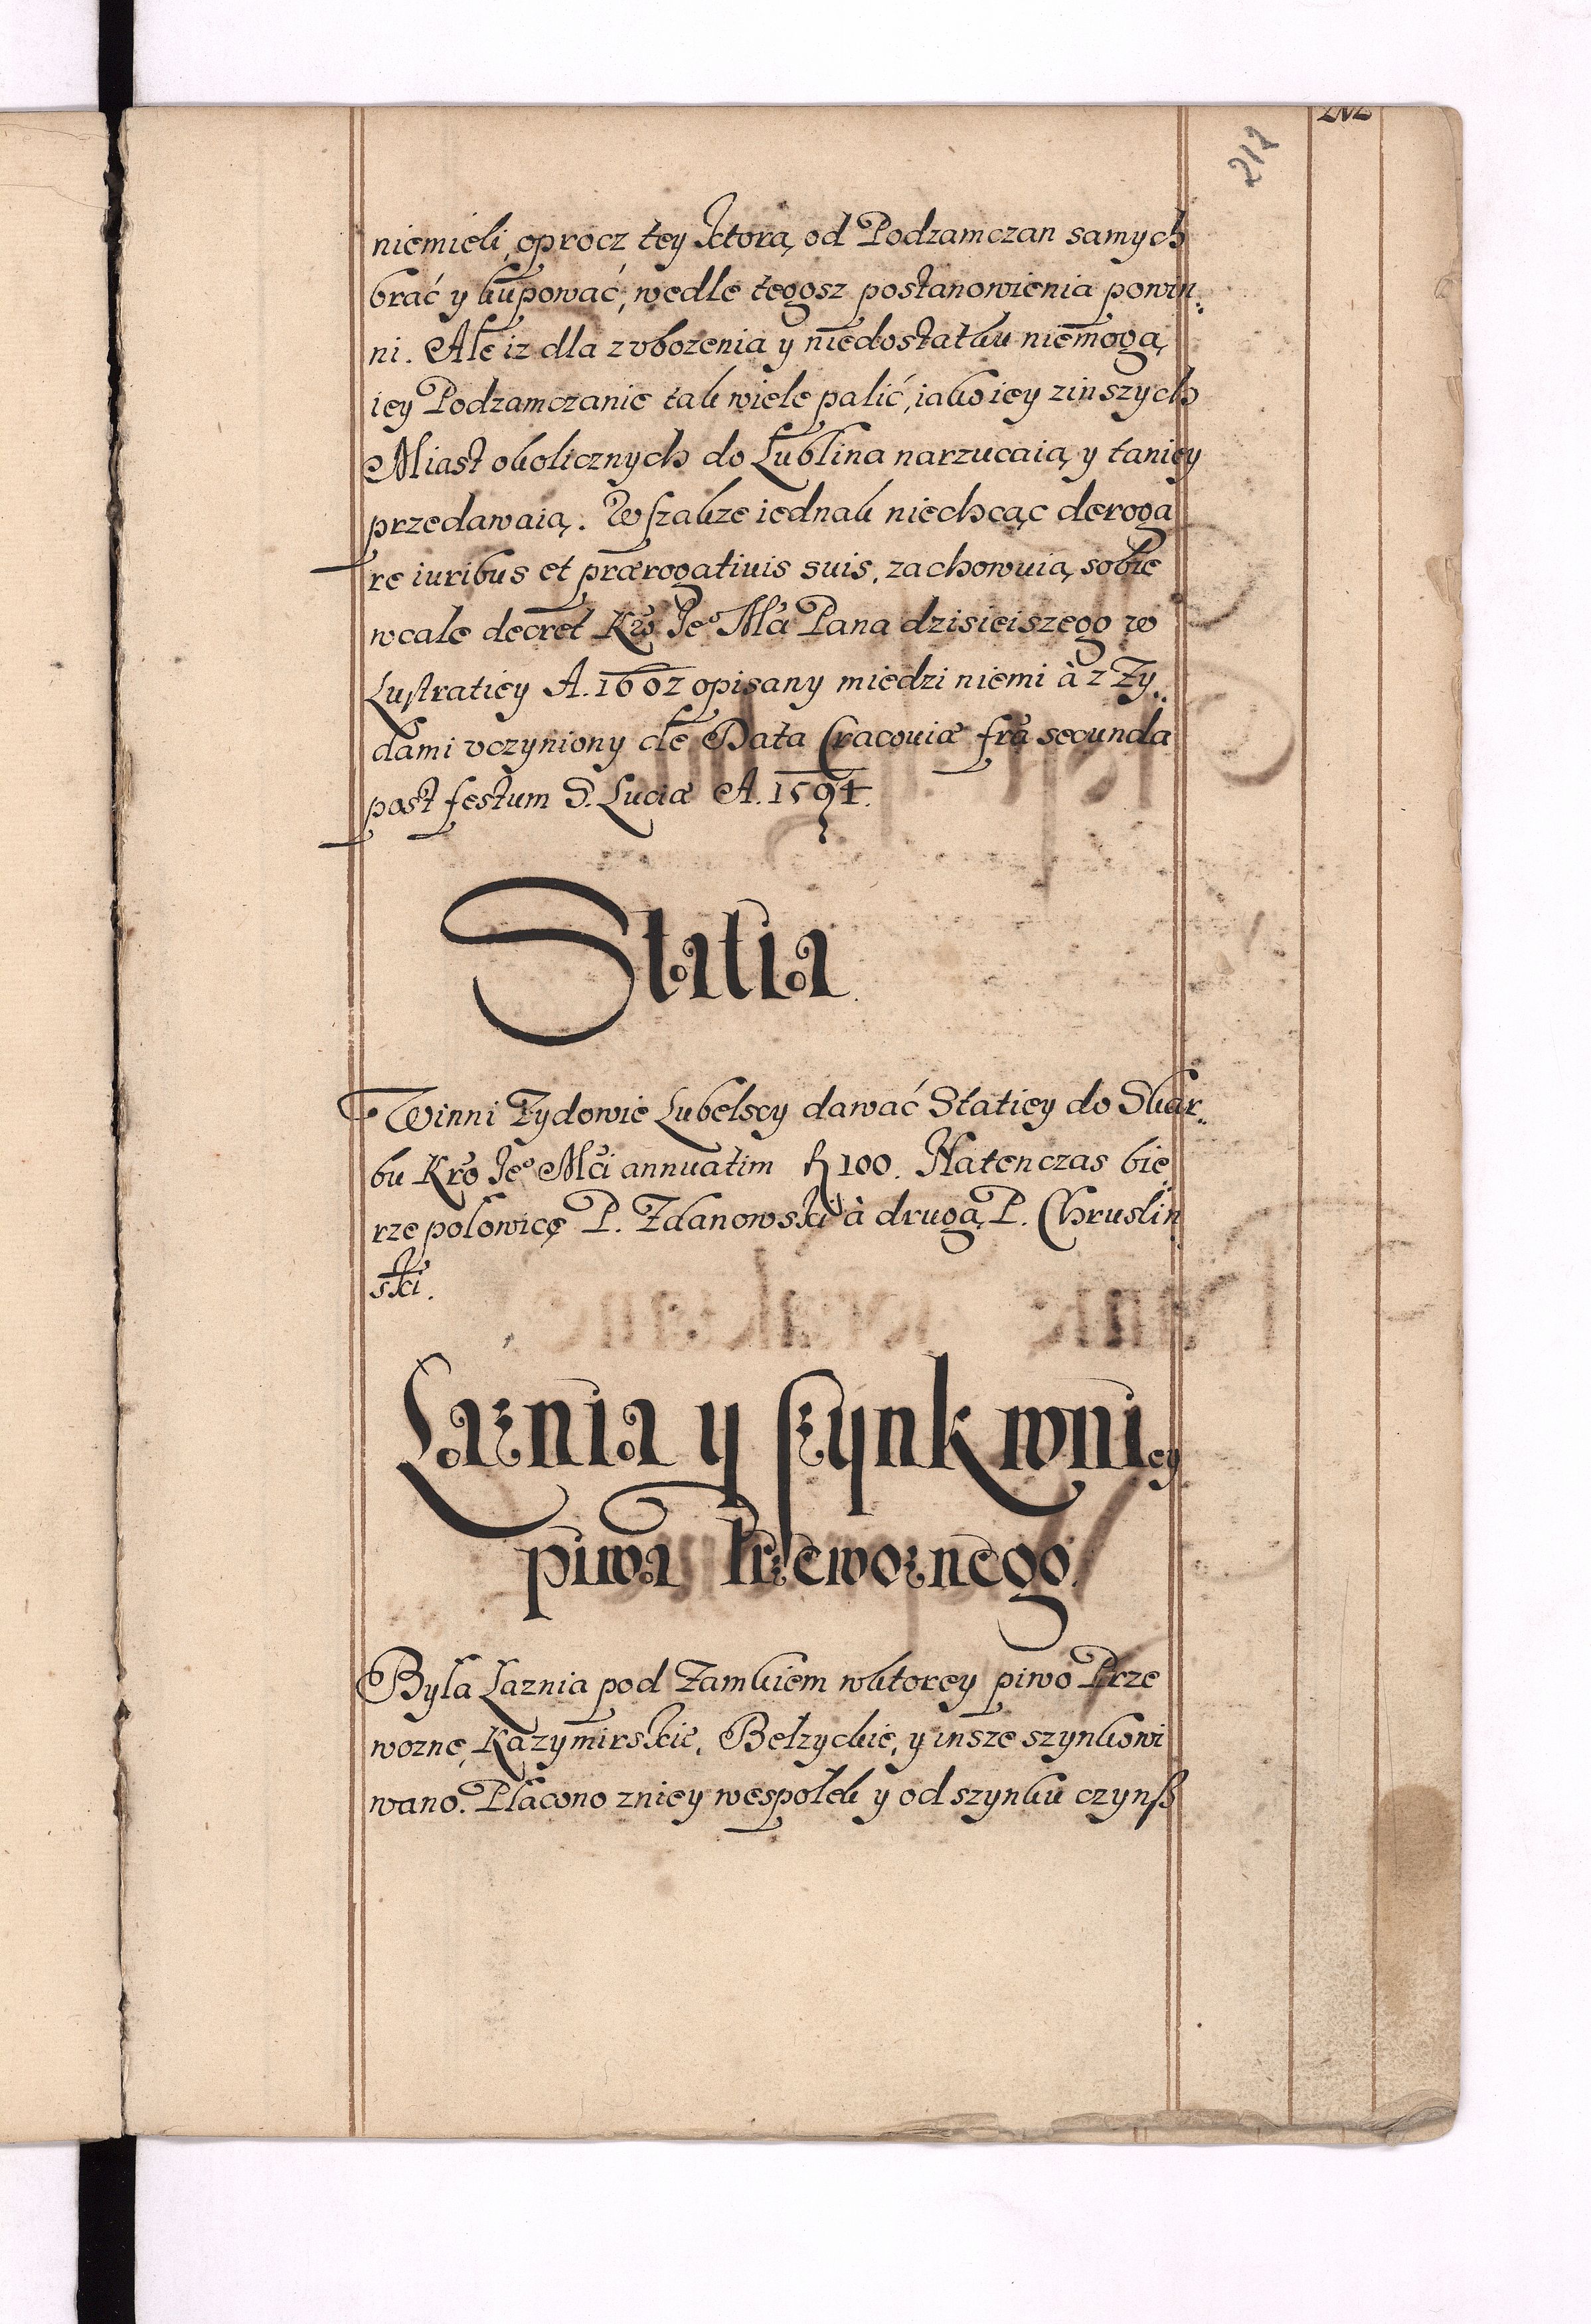 212
niemieli, oprocz tey ktorą od Podzamczan samych
brać y kupować, wedle tegosz postanowienia powin:
ni. Ale iz dla zvbozenia y niedostatku niemogą
iey Podzamczanie tak wiele palić, iako iey zinszych
Miast okolicznych do Lublina narzucaią y taniey
przedawaią. Wszakze iednak niechcąc deroga
re iuribus et prærogatiuis suis, zachowuią sobie
wcale decret Krw̃ Je° Mći Pana dzisieiszego w
Lustratiey A. 1602 opisany miedzi niemi à z Zy:
dami vczyniony de Data Cracouiæ fra secunda
post festum S. Luciæ A. 1594.
Statia
Winni Zydowie Lubelscy dawać Statiey do Skar:
bu Kro Je° Mći annuatim fl 100. Natenczas bie:
rze polowicę P. Zdanowski à drugą P. Chruslin:
ski.
Laznia y szynk wniey
piwa Przewoznego.
Byla Laznia pod Zamkiem wktorey piwo Prze
wozne, Kazymirskie, Belzyckie, y insze szynkowi
wano. Płacono zniey wespołek y od szynku czynsz